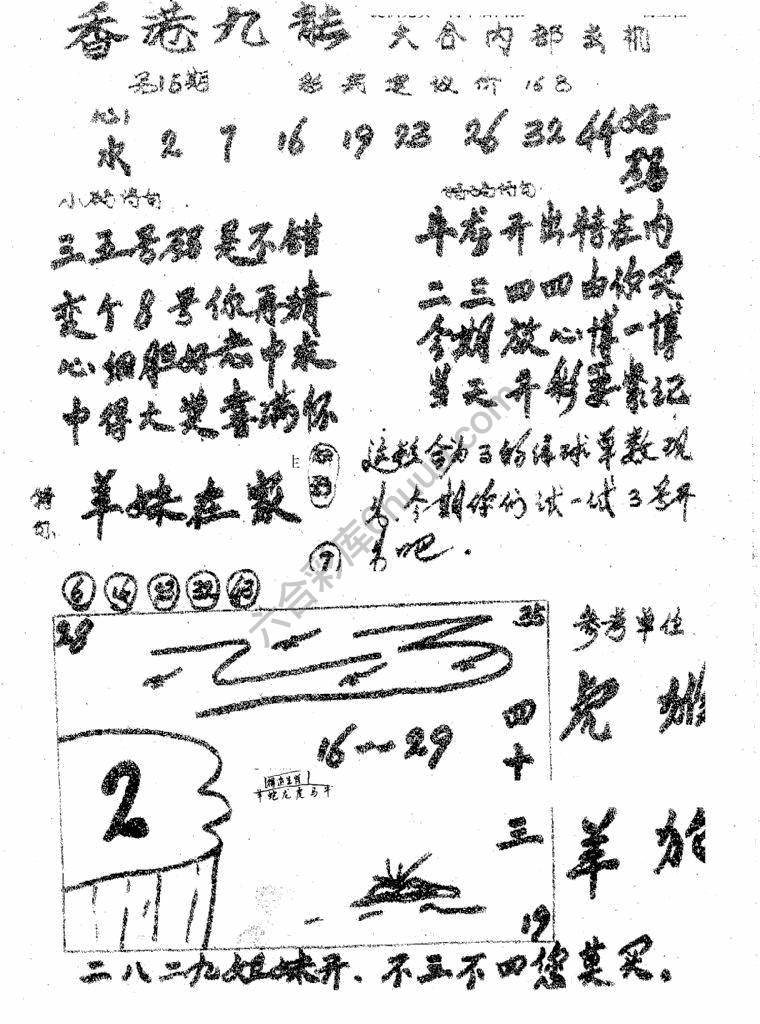 香港九龍 六合内部玄机
16期 168
水 2 7 16 19 23 26 32 44 好
码
小码诗句
三五号码是不错
变个8号你再猜
心细胆好志中求
中得大奖喜满怀
牛龙开出特在内
二三四四由你买
今期放心博一博
当天开彩要紧记
诗句 羊妹在家
这数合为3的绿球单数现
今期你们试一试3号开
吧.
7
6 14 23 32 43
28 35
2
16—29
四十三
19
羊蛇龙虎马牛
参考单位
虎 猴
羊 狗
二八二九姐妹开、不三不四您莫买。
六合彩库